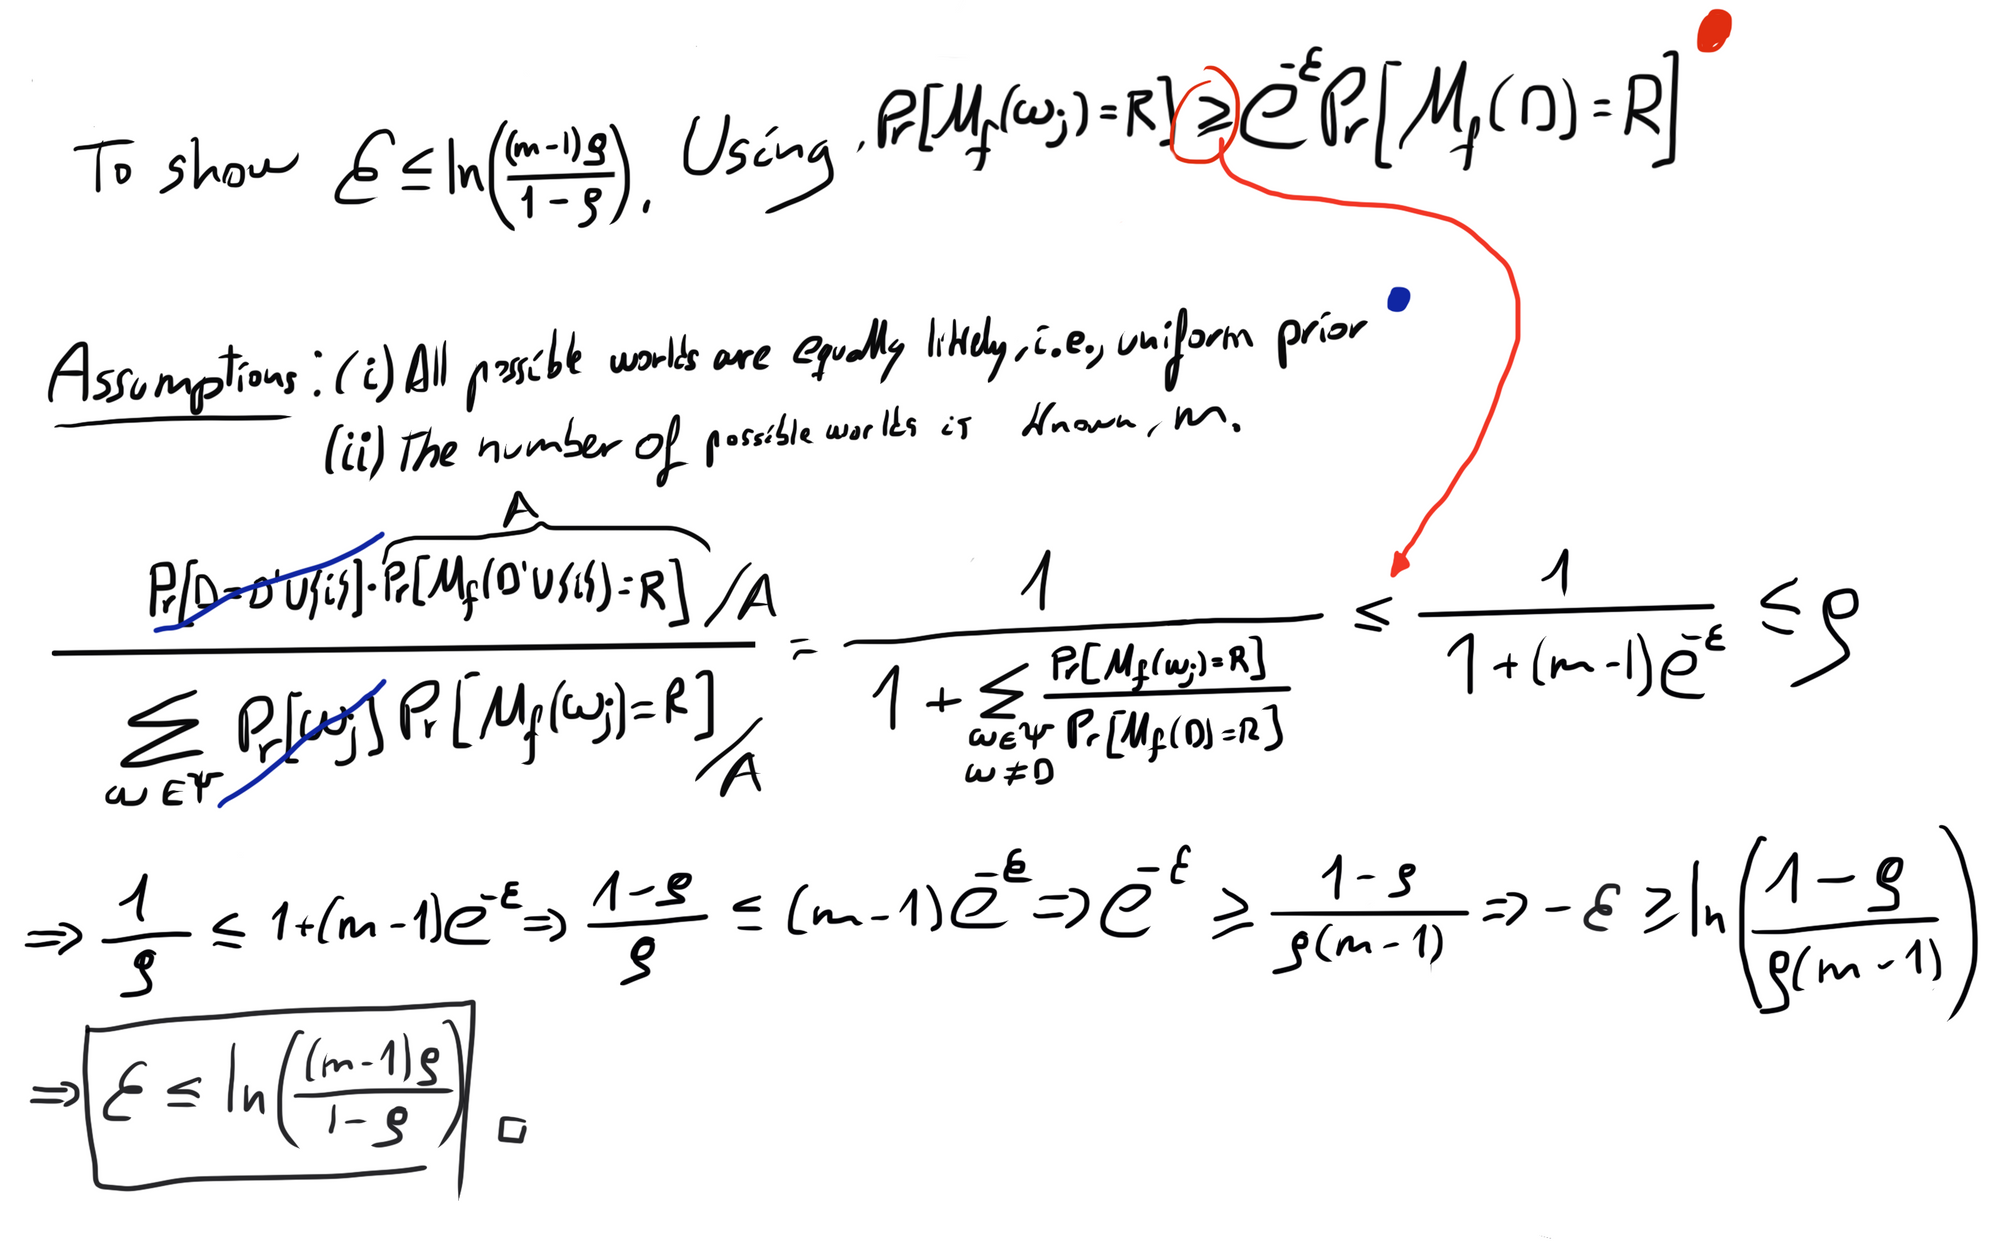 To show ε ≤ ln((m-1)ρ / 1-ρ). Using, Pr[M_f(ω_j)=R] ≥ e^{-ε} Pr[M_f(D)=R]
Assumptions: (i) All possible worlds are equally likely, i.e., uniform prior
(ii) The number of possible worlds is known, m.
A
Pr[D=D'∪{i}]·Pr[M_f(D'∪{i})=R] /A
Σ_{ω∈Ψ} Pr[ω_j] Pr[M_f(ω_j)=R] /A
= 1 / (1 + Σ_{ω∈Ψ, ω≠D} Pr[M_f(ω_j)=R] / Pr[M_f(D)=R]) ≤ 1 / (1+(m-1)e^{-ε}) ≤ ρ
⇒ 1/ρ ≤ 1+(m-1)e^{-ε} ⇒ (1-ρ)/ρ ≤ (m-1)e^{-ε} ⇒ e^{-ε} ≥ (1-ρ)/(ρ(m-1)) ⇒ -ε ≥ ln((1-ρ)/(ρ(m-1)))
⇒ ε ≤ ln((m-1)ρ / 1-ρ) □